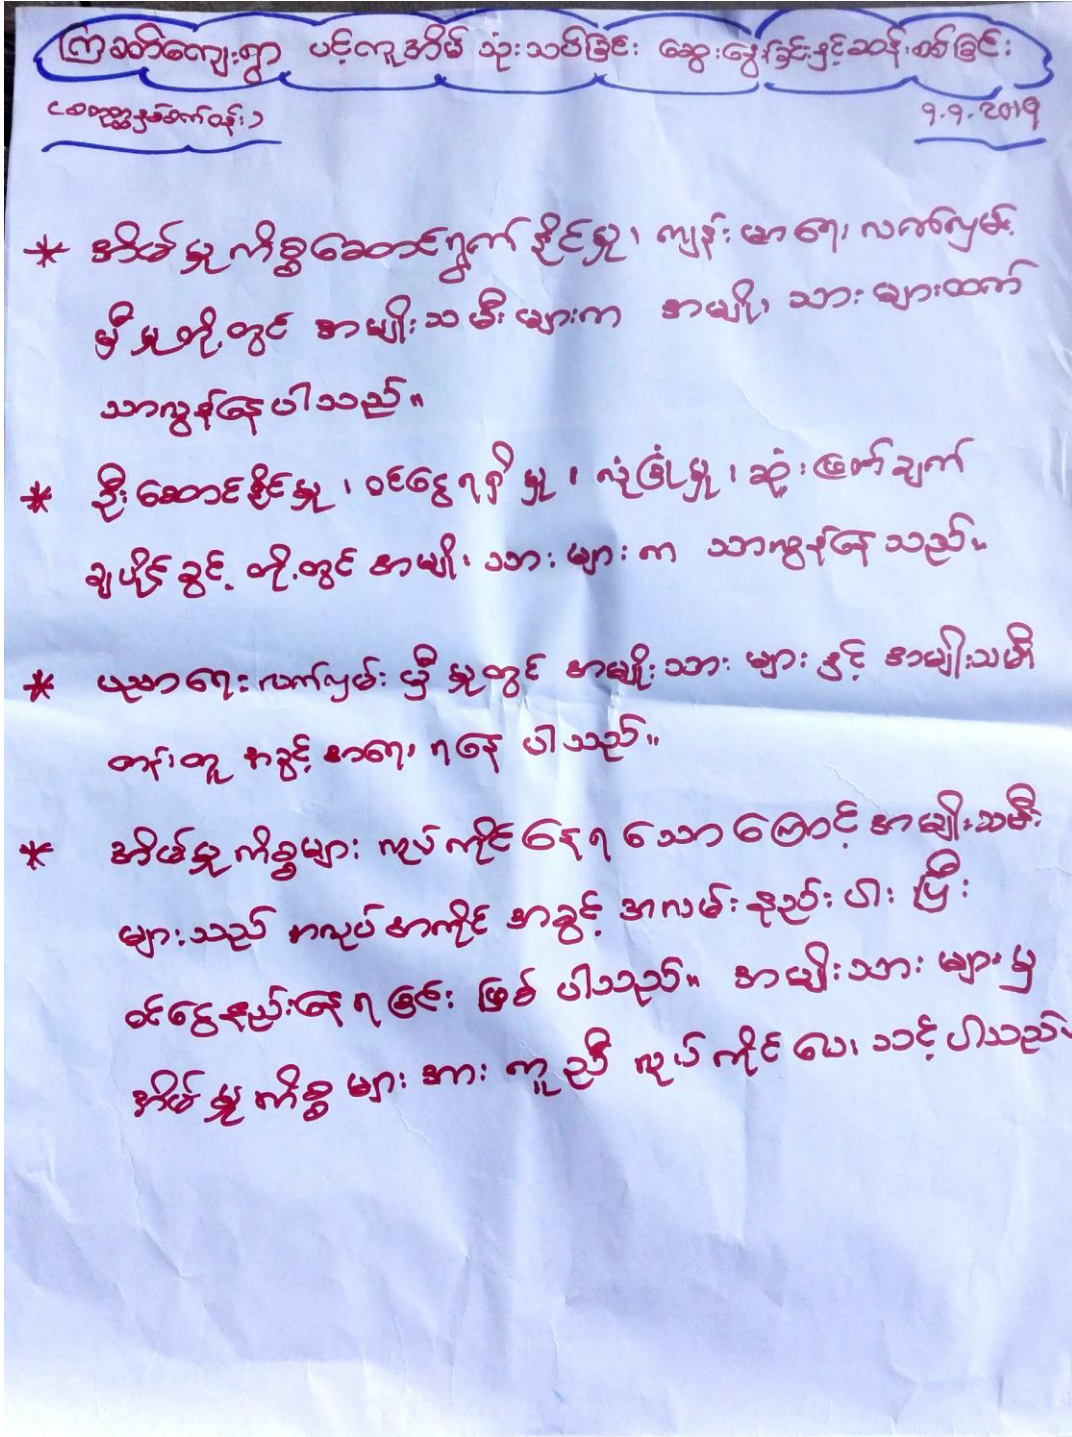 ကြခတ်ကျေးရွာ ပင့်ကူအိမ် သုံးသပ်ခြင်း ဆွေးနွေးခြင်းနှင့်ဆန်းစစ်ခြင်း
(စတုတ္ထနှစ်ဝက်ဝန်း)
၅.၅.၂၀၁၅
* အိမ်မှုကိစ္စဆောင်ရွက်နိုင်မှု၊ ကျန်းမာရေး လက်လှမ်း
မှီမှုတို့တွင် အမျိုးသမီးများက အမျိုးသားများထက်
သာလွန်နေပါသည်။
* ဦးဆောင်နိုင်မှု၊ ဝင်ငွေရရှိမှု၊ လုံခြုံမှု၊ ဆုံးဖြတ်ချက်
ချပိုင်ခွင့် တို့တွင် အမျိုးသားများက သာလွန်နေသည်။
* ပညာရေးလက်လှမ်းမှီမှုတွင် အမျိုးသားများနှင့် အမျိုးသမီး
တန်းတူ အခွင့်အရေး ရနေပါသည်။
* အိမ်မှုကိစ္စများ လုပ်ကိုင်နေရသောကြောင့် အမျိုးသမီး
များသည် အလုပ်အကိုင် အခွင့်အလမ်းနည်းပါးပြီး
ဝင်ငွေနည်းနေရခြင်း ဖြစ်ပါသည်။ အမျိုးသားများမှ
အိမ်မှုကိစ္စများအား ကူညီ လုပ်ကိုင်ပေးသင့်ပါသည်။